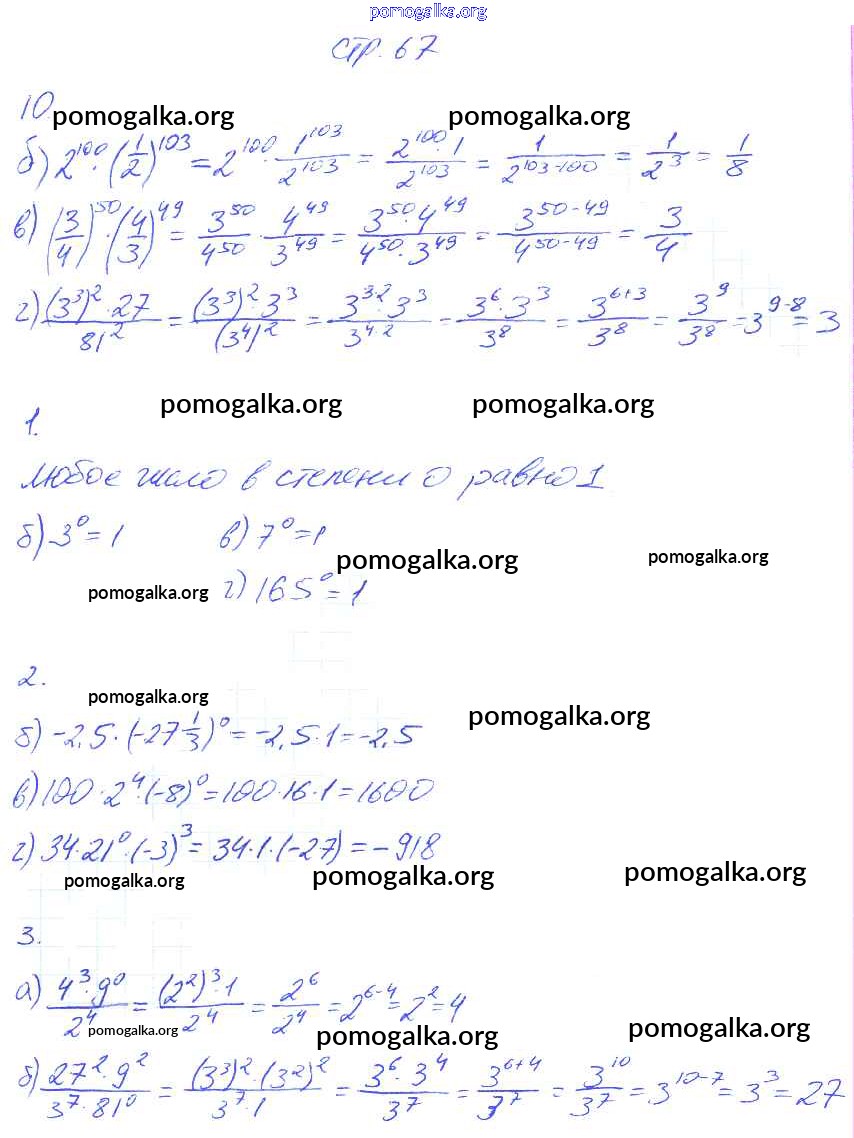 pomogalka.org
стр. 67
10.
pomogalka.org pomogalka.org
б) 2^100 · (1/2)^103 = 2^100 · 1^103/2^103 = (2^100 · 1)/2^103 = 1/2^(103-100) = 1/2^3 = 1/8
в) (3/4)^50 · (4/3)^49 = 3^50/4^50 · 4^49/3^49 = (3^50 · 4^49)/(4^50 · 3^49) = 3^(50-49)/4^(50-49) = 3/4
г) ((3^3)^2 · 27)/81^2 = ((3^3)^2 · 3^3)/(3^4)^2 = (3^(3·2) · 3^3)/3^(4·2) = (3^6 · 3^3)/3^8 = 3^(6+3)/3^8 = 3^9/3^8 = 3^(9-8) = 3
pomogalka.org pomogalka.org
1.
Любое число в степени 0 равно 1
б) 3^0 = 1 в) 7^0 = 1
pomogalka.org pomogalka.org
pomogalka.org г) 165^0 = 1
2.
pomogalka.org pomogalka.org
б) -2,5 · (-27 1/3)^0 = -2,5 · 1 = -2,5
в) 100 · 2^4 · (-8)^0 = 100 · 16 · 1 = 1600
г) 34 · 21^0 · (-3)^3 = 34 · 1 · (-27) = -918
pomogalka.org pomogalka.org pomogalka.org
3.
а) (4^3 · 9^0)/2^4 = ((2^2)^3 · 1)/2^4 = 2^6/2^4 = 2^(6-4) = 2^2 = 4
pomogalka.org pomogalka.org pomogalka.org
б) (27^2 · 9^2)/(3^7 · 81^0) = ((3^3)^2 · (3^2)^2)/(3^7 · 1) = (3^6 · 3^4)/3^7 = 3^(6+4)/3^7 = 3^10/3^7 = 3^(10-7) = 3^3 = 27